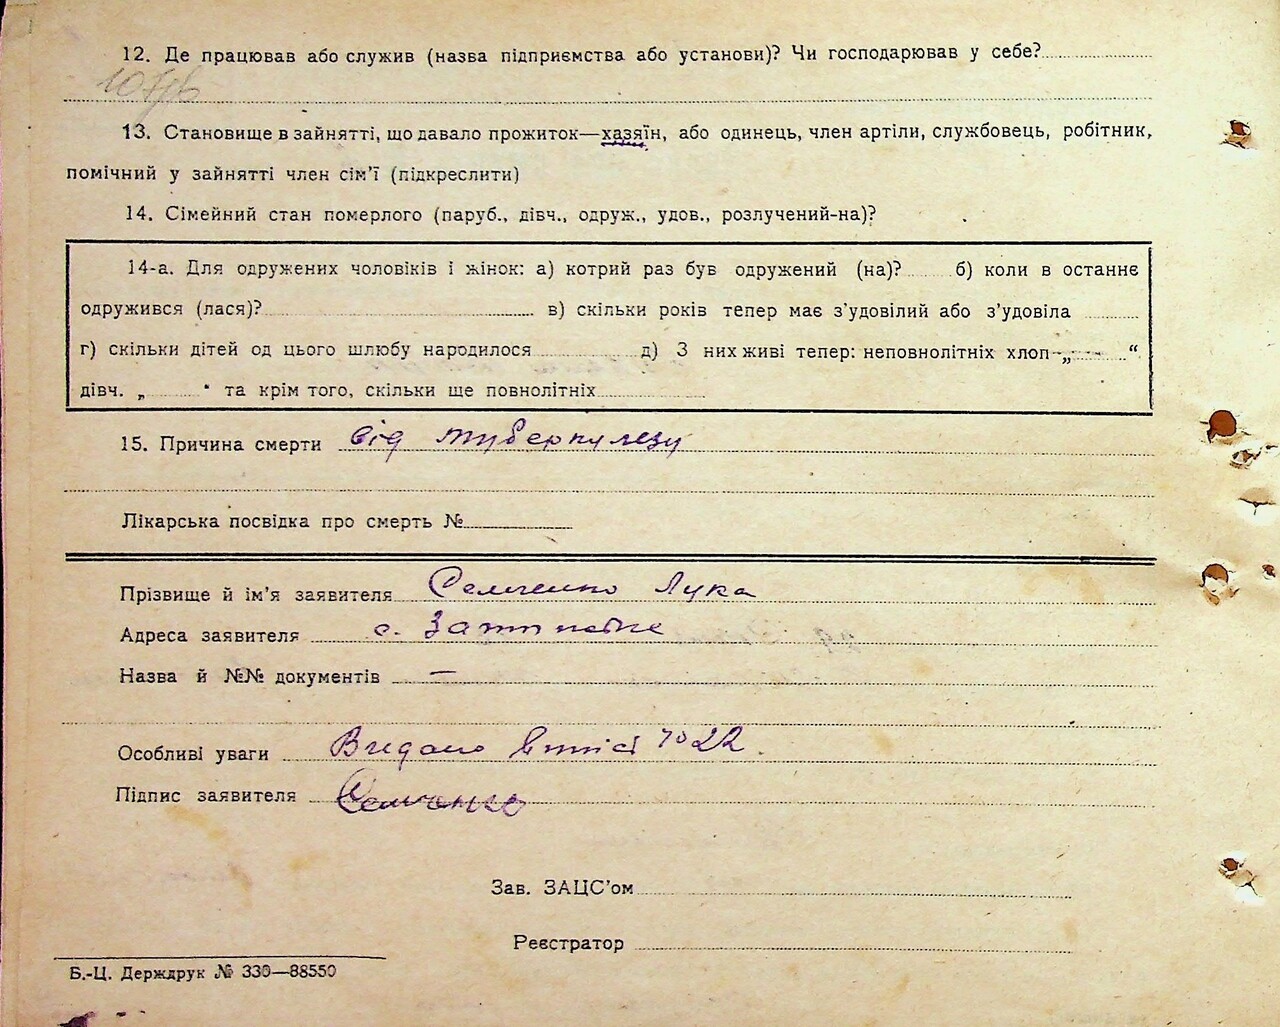 12. Де працював або служив (назва підприємства або установи)? Чи господарював у себе?
13. Становище в зайнятті, що давало прожиток—хазяїн, або одинець, член артіли, службовець, робітник,
помічний у зайнятті член сім’ї (підкреслити)
14. Сімейний стан померлого (паруб., дівч., одруж., удов., розлучений-на)?
14-а. Для одружених чоловіків і жінок: а) котрий раз був одружений (на)? б) коли в останнє
одружився (лася)? в) скільки років тепер має з’удовілий або з’удовіла
г) скільки дітей од цього шлюбу народилося д) З них живі тепер: неповнолітніх хлоп-„ “
дівч. „ “ та крім того, скільки ще повнолітніх
15. Причина смерти від туберкулезу
Лікарська посвідка про смерть №
Прізвище й ім’я заявителя Семченко Лука
Адреса заявителя с.
Назва й №№ документів —
Особливі уваги 22
Підпис заявителя Семченко
Зав. ЗАЦС’ом
Реєстратор
Б.-Ц. Держдрук № 330—88550